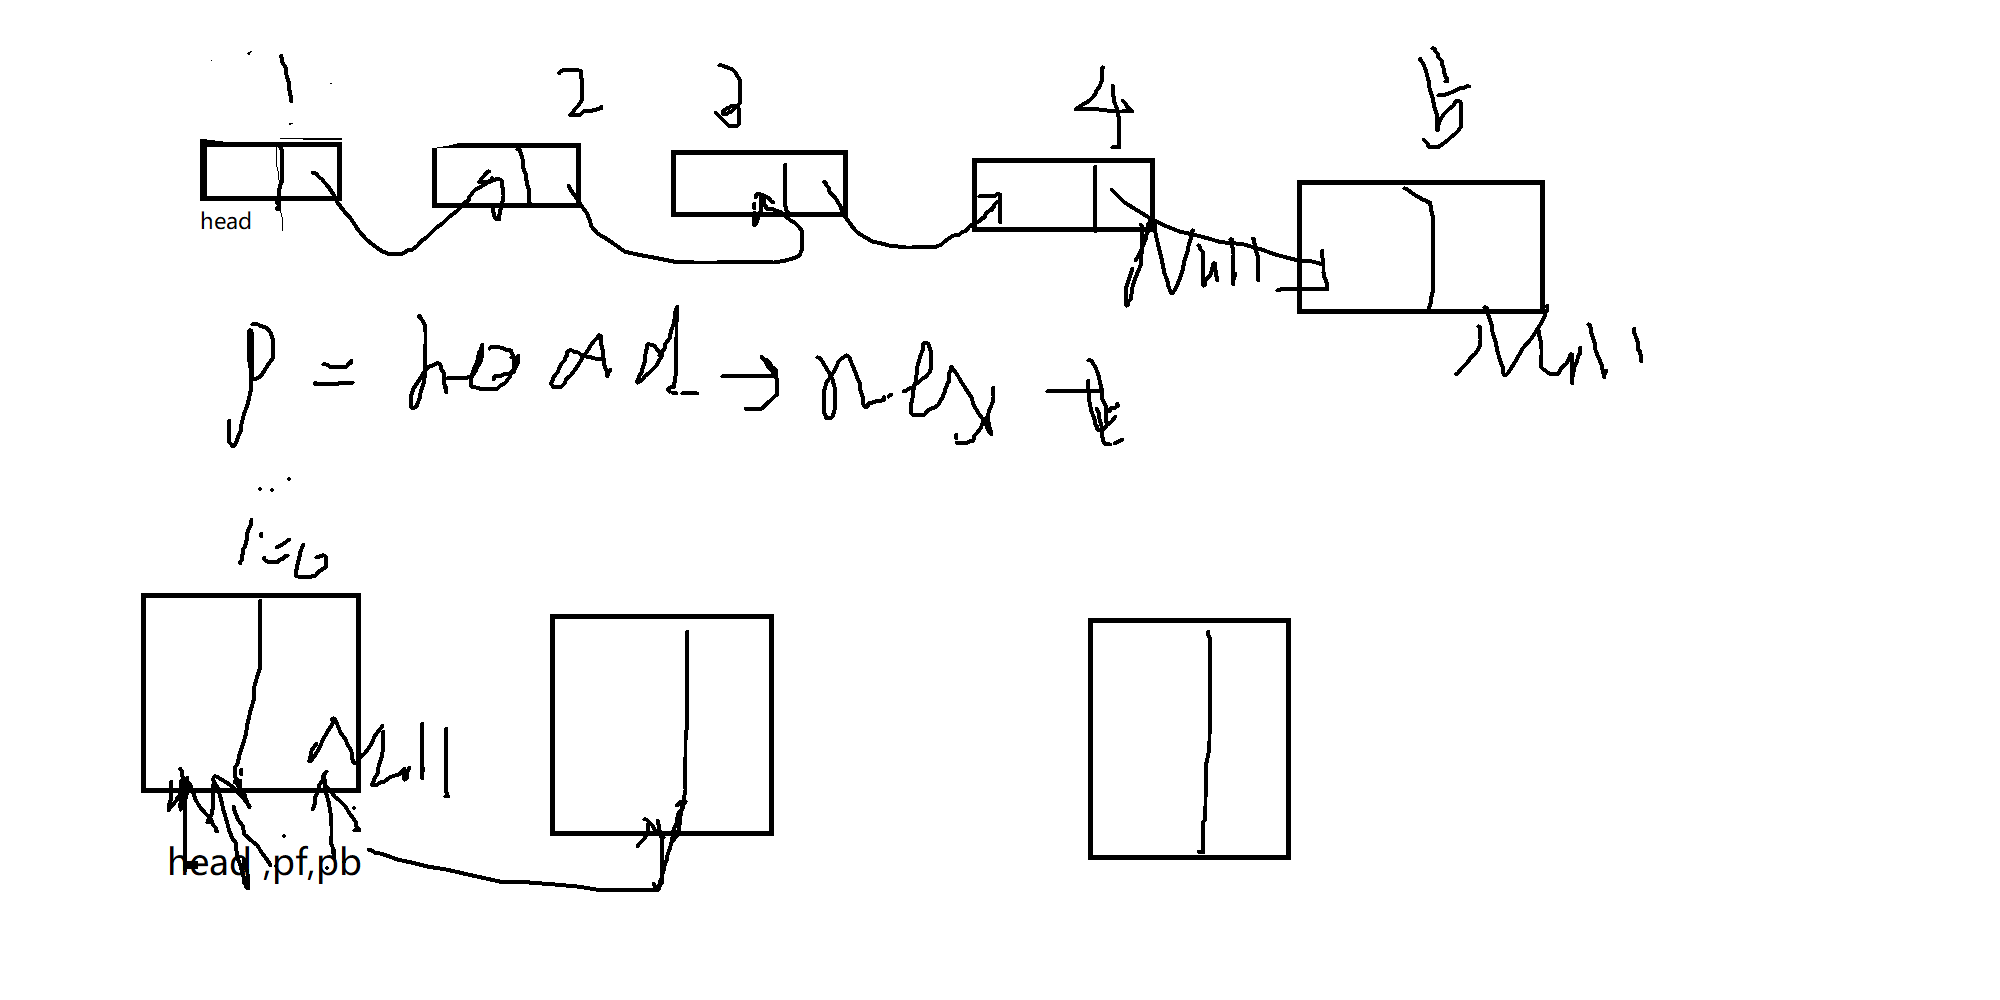 1 2 3 4 5
head
Null
Null
p = head → next
i=0
Null
head ,pf,pb